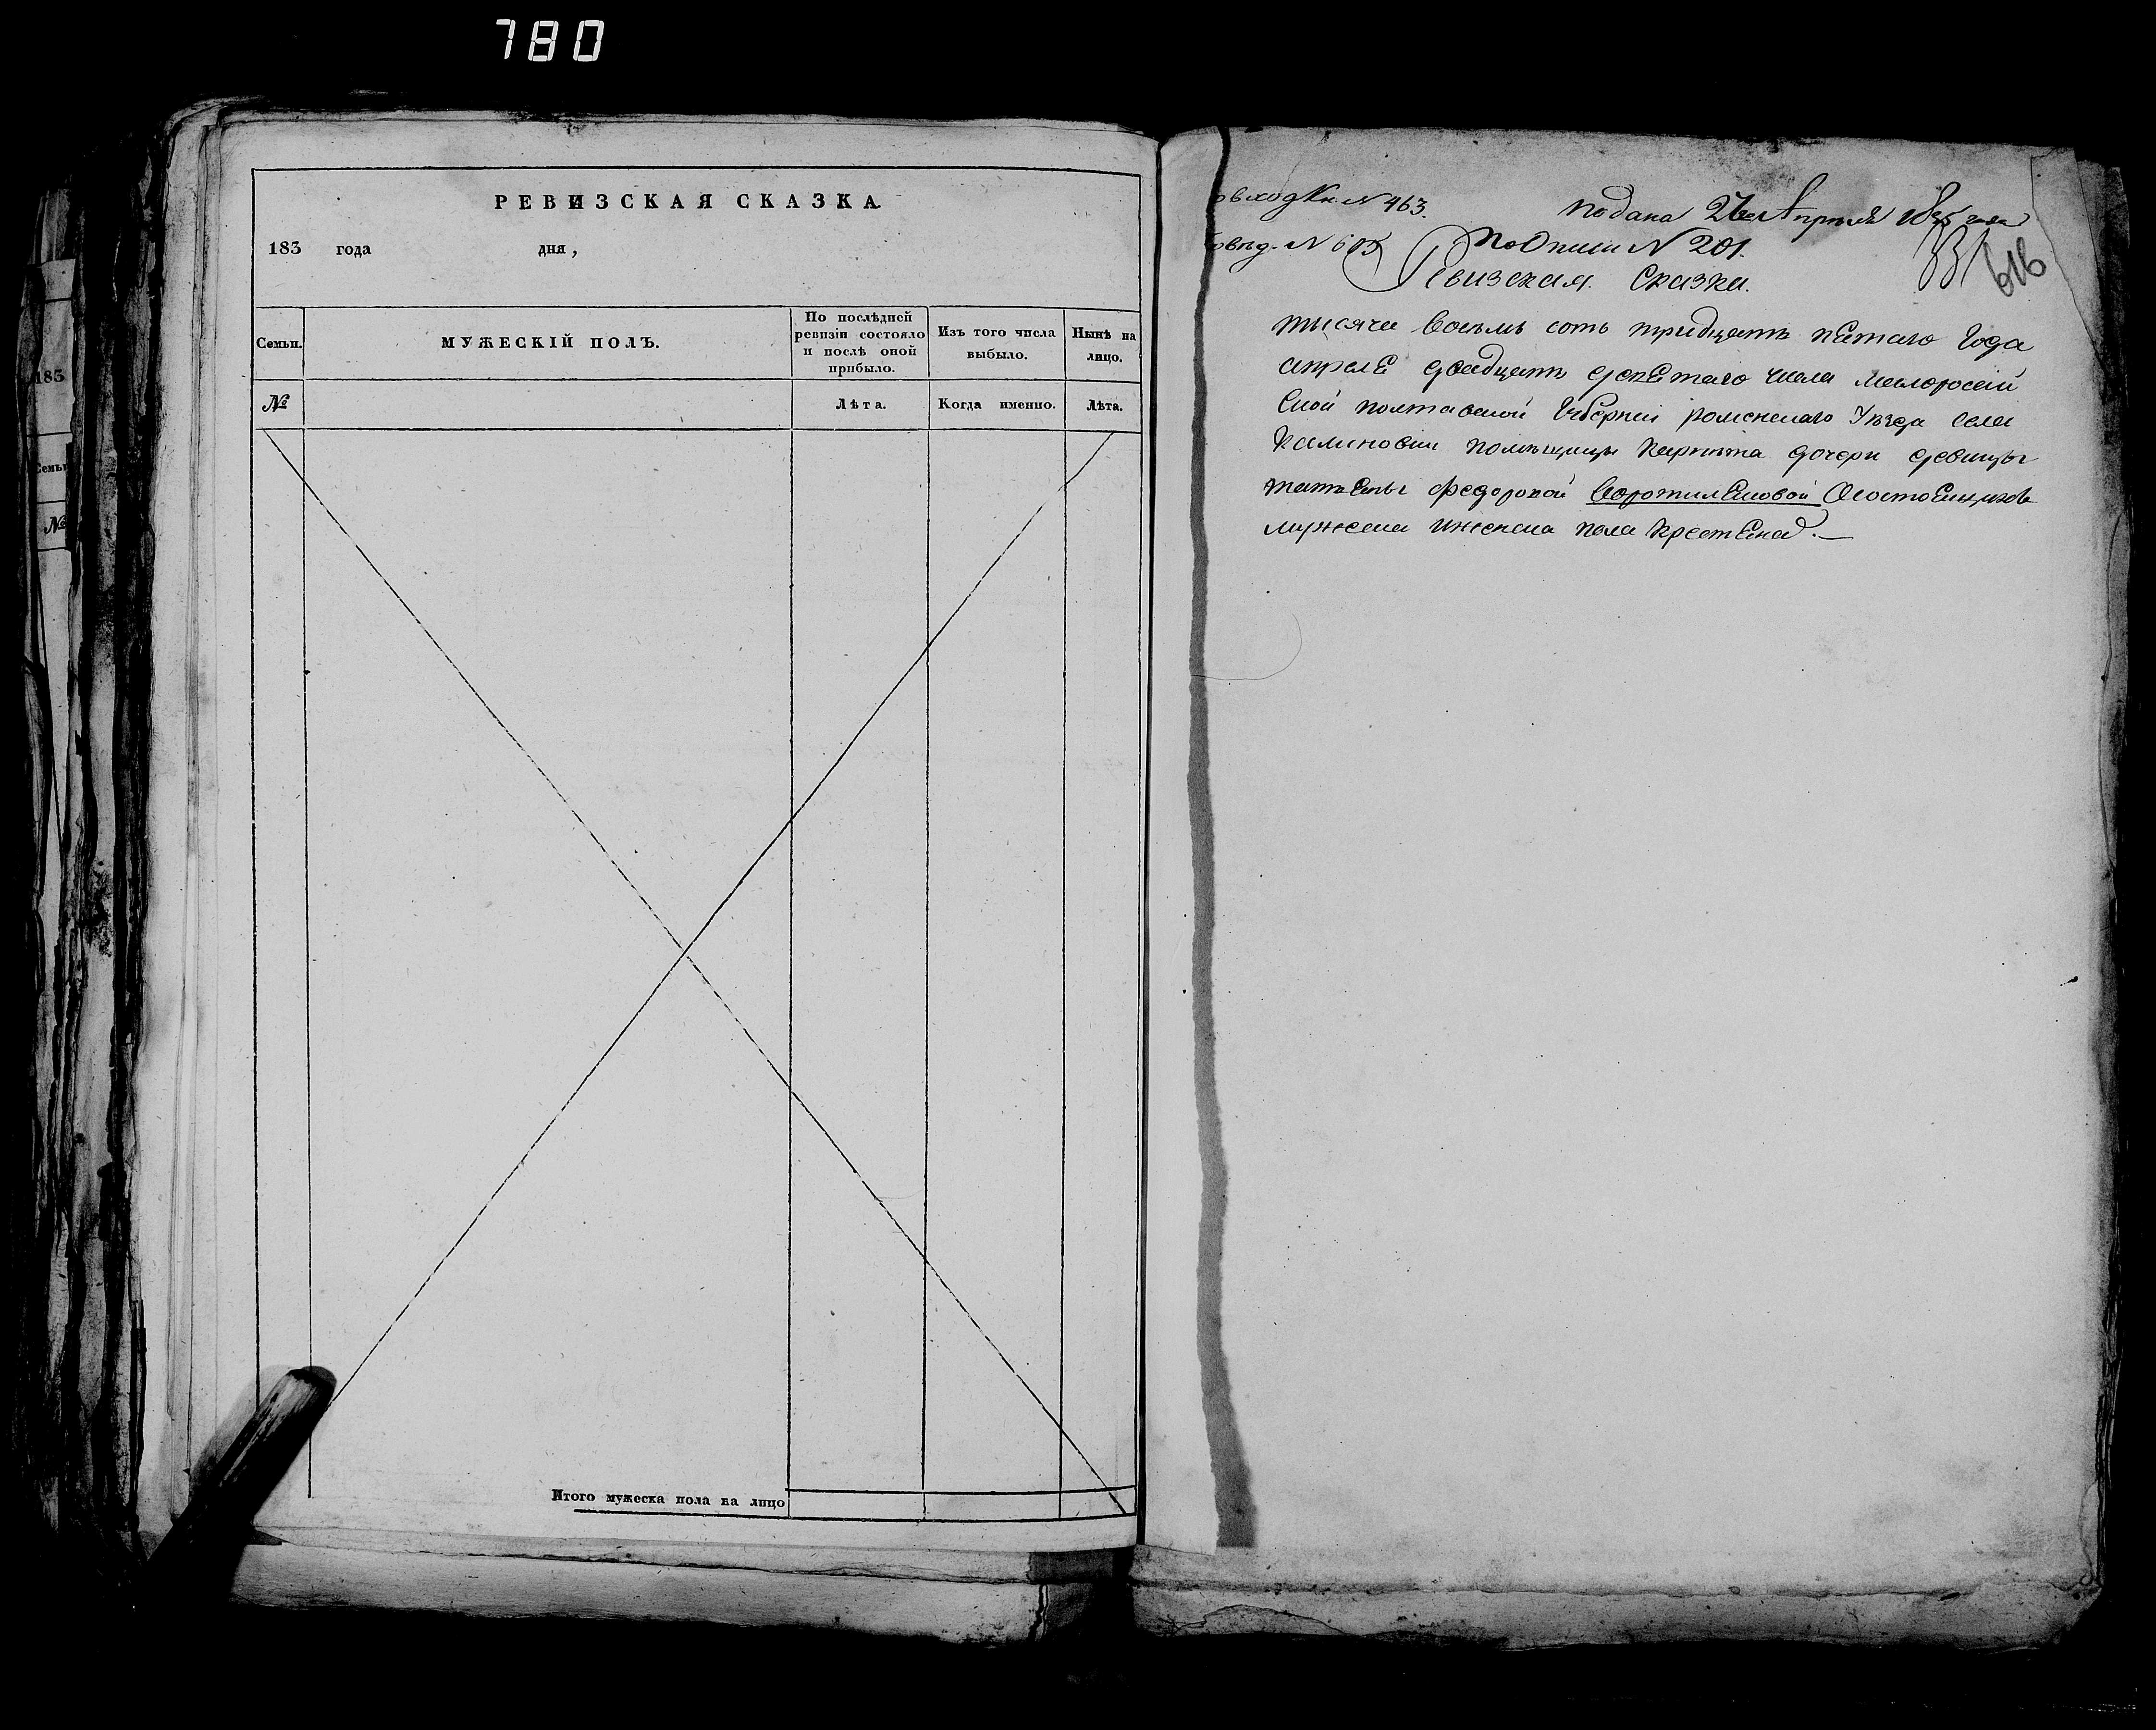 780
РЕВИЗСКАЯ СКАЗКА
183 года дня,
Семьи.
МУЖЕСКІЙ ПОЛЪ.
По послѣдней ревизіи состояло и послѣ оной прибыло.
Изъ того числа выбыло.
Нынѣ на лицо.
№
Лѣта.
Когда именно.
Лѣта.
Итого мужеска пола на лицо
183
Семьи
№
входКн. N 463.
подана Апреля года
N 605
По Описи N 201.
616
Ревизская Сказка.
тысяча восемь сотъ тридцать пятаго Года
апреля двадцать девятаго числа малоросій
ской полтавской Губерніи роменскаго Уезда села
Калиновки помещицы дочери девицы
татьяны федоровой состоящихъ
мужеска иженска пола крестьянах.